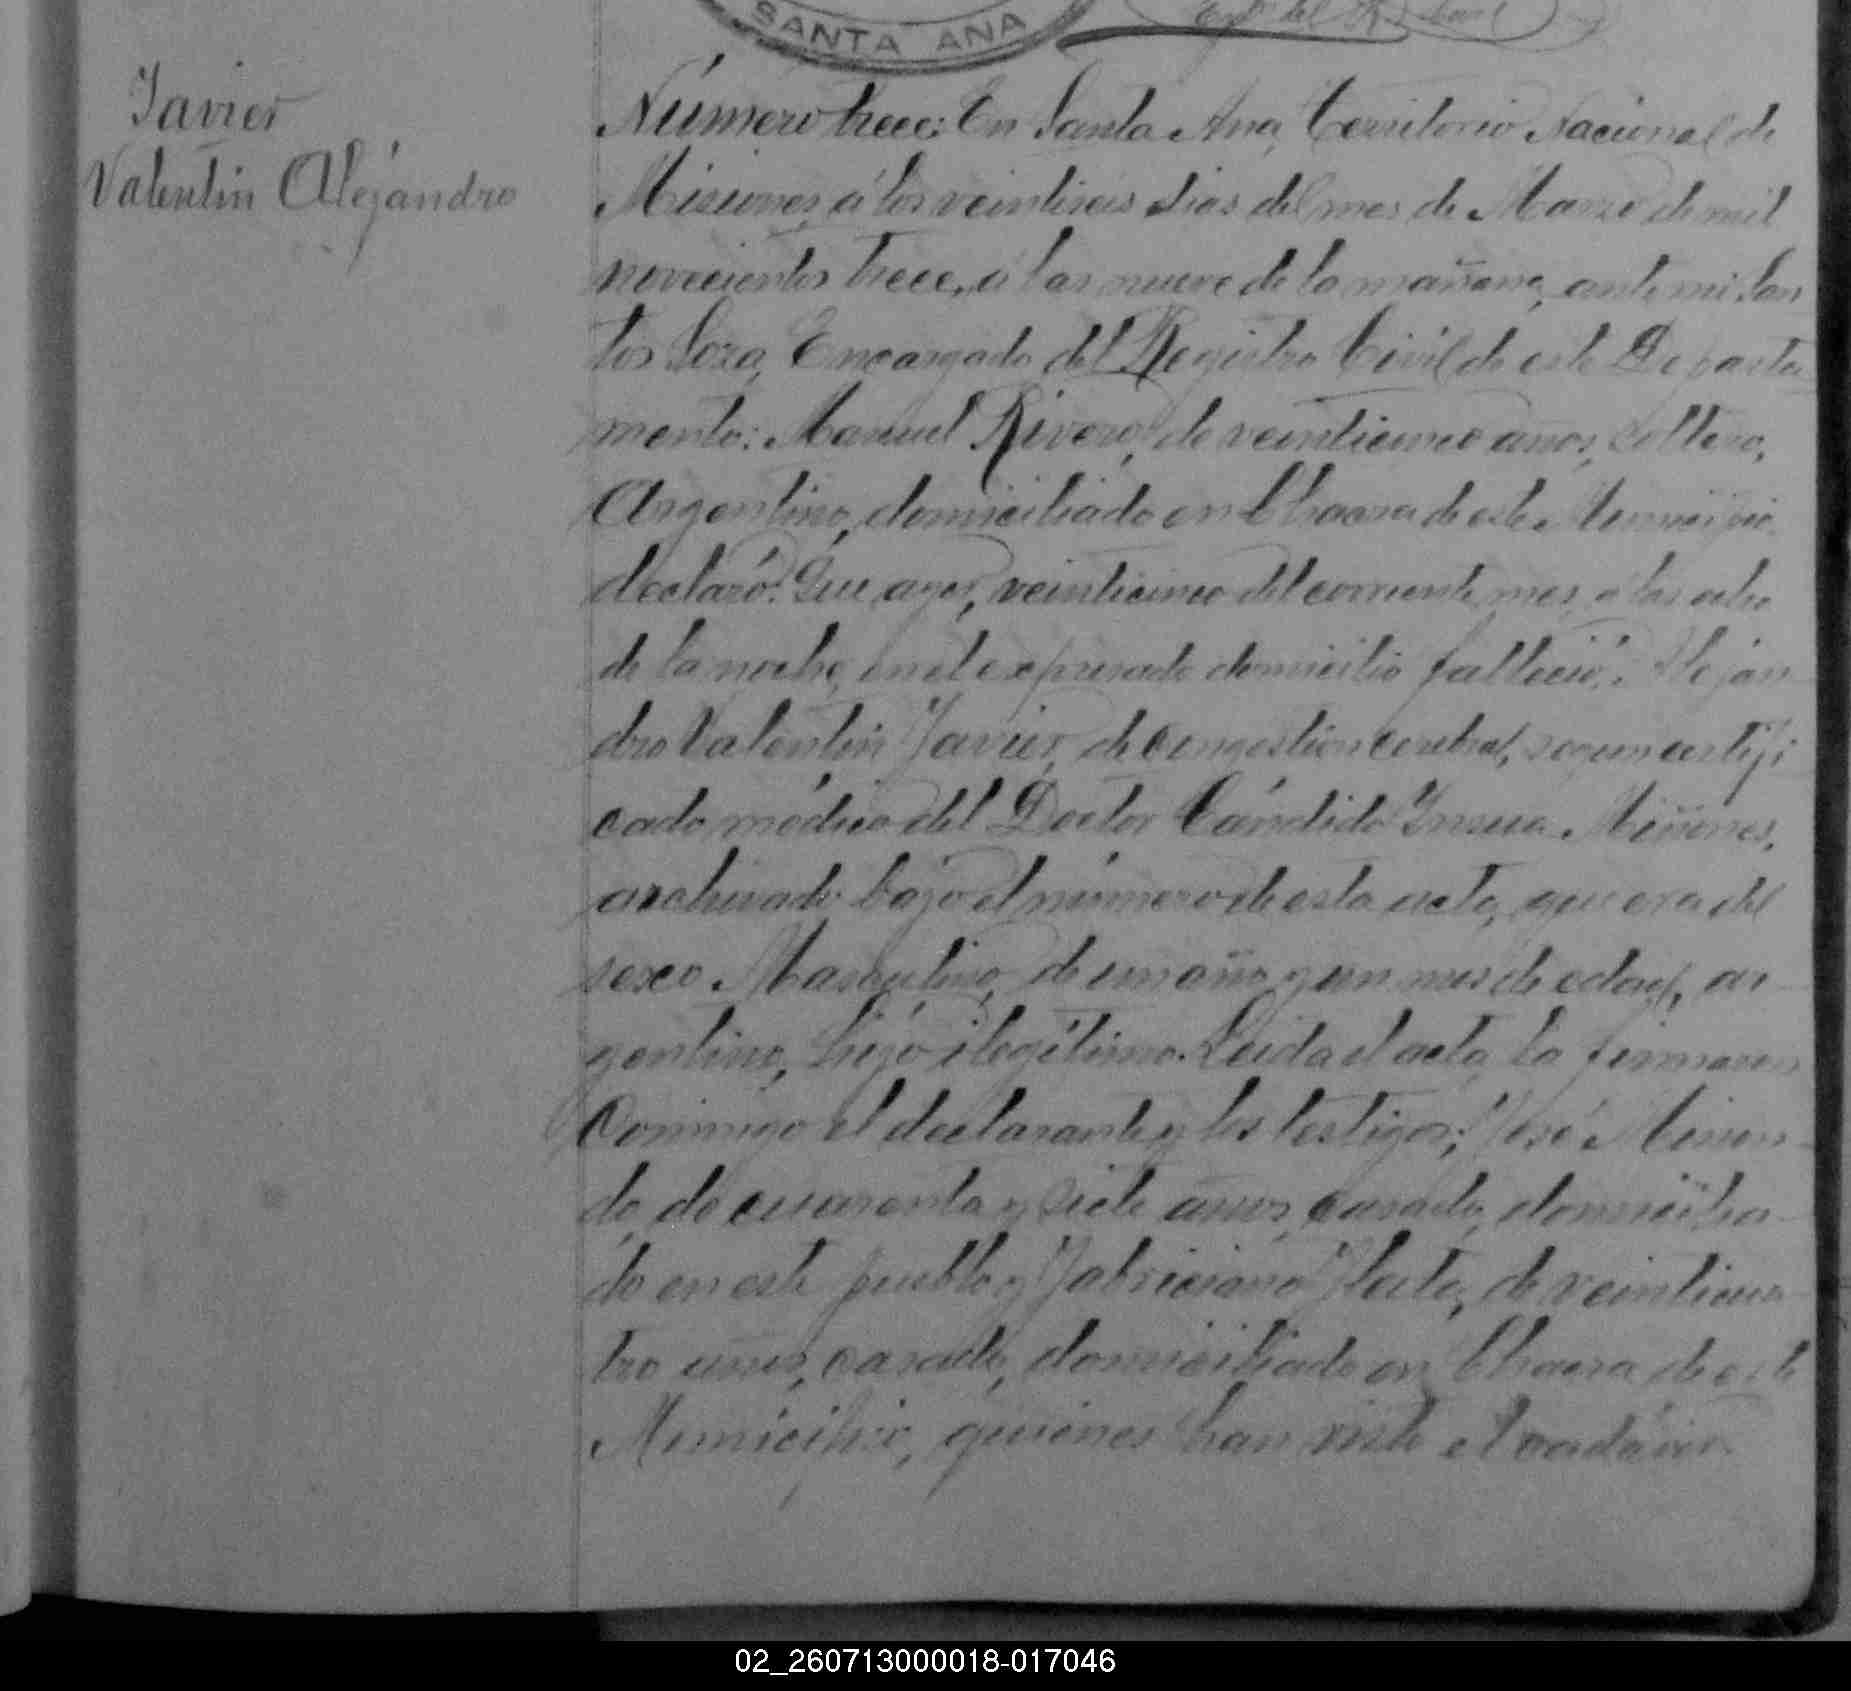 SANTA ANA
Javier
Valentin Alejándro
Número trece: En Santa Ana, Territorio Nacional de
Misiones, á los veintiseis dias del mes de Marzo de mil
novecientos trece, á las nueve de la mañana, ante mi San
tos Soza, Encargado del Registro Civil de este Departa
mento: Manuel Rivero, de veinticinco años, soltero,
Argentino, domiciliádo en Chacra de este Municipio
declaró: Que ayer, veinticinco del corriente mes, á las ocho
de la noche, en el expresado domicilio falleció: Alejan
dro Valentin Javier, de congestion cerebral, segun certifi
cado médico del Doctor Cándido Insua Miñones,
archivado bajo el número de esta acta, que era del
sexo Masculino, de un año y un mes de edad, ar
gentino, hijo ilegítimo. Leida el acta, la firmaron
conmigo el declarante y los testigos; José
de cuarenta y siete años, casado, domicilia
do en este pueblo y Fabriciano de veinticua
tro años, casado, domiciliado en Chacra de este
Municipio, quienes han visto el cadáver.
02_260713000018-017046